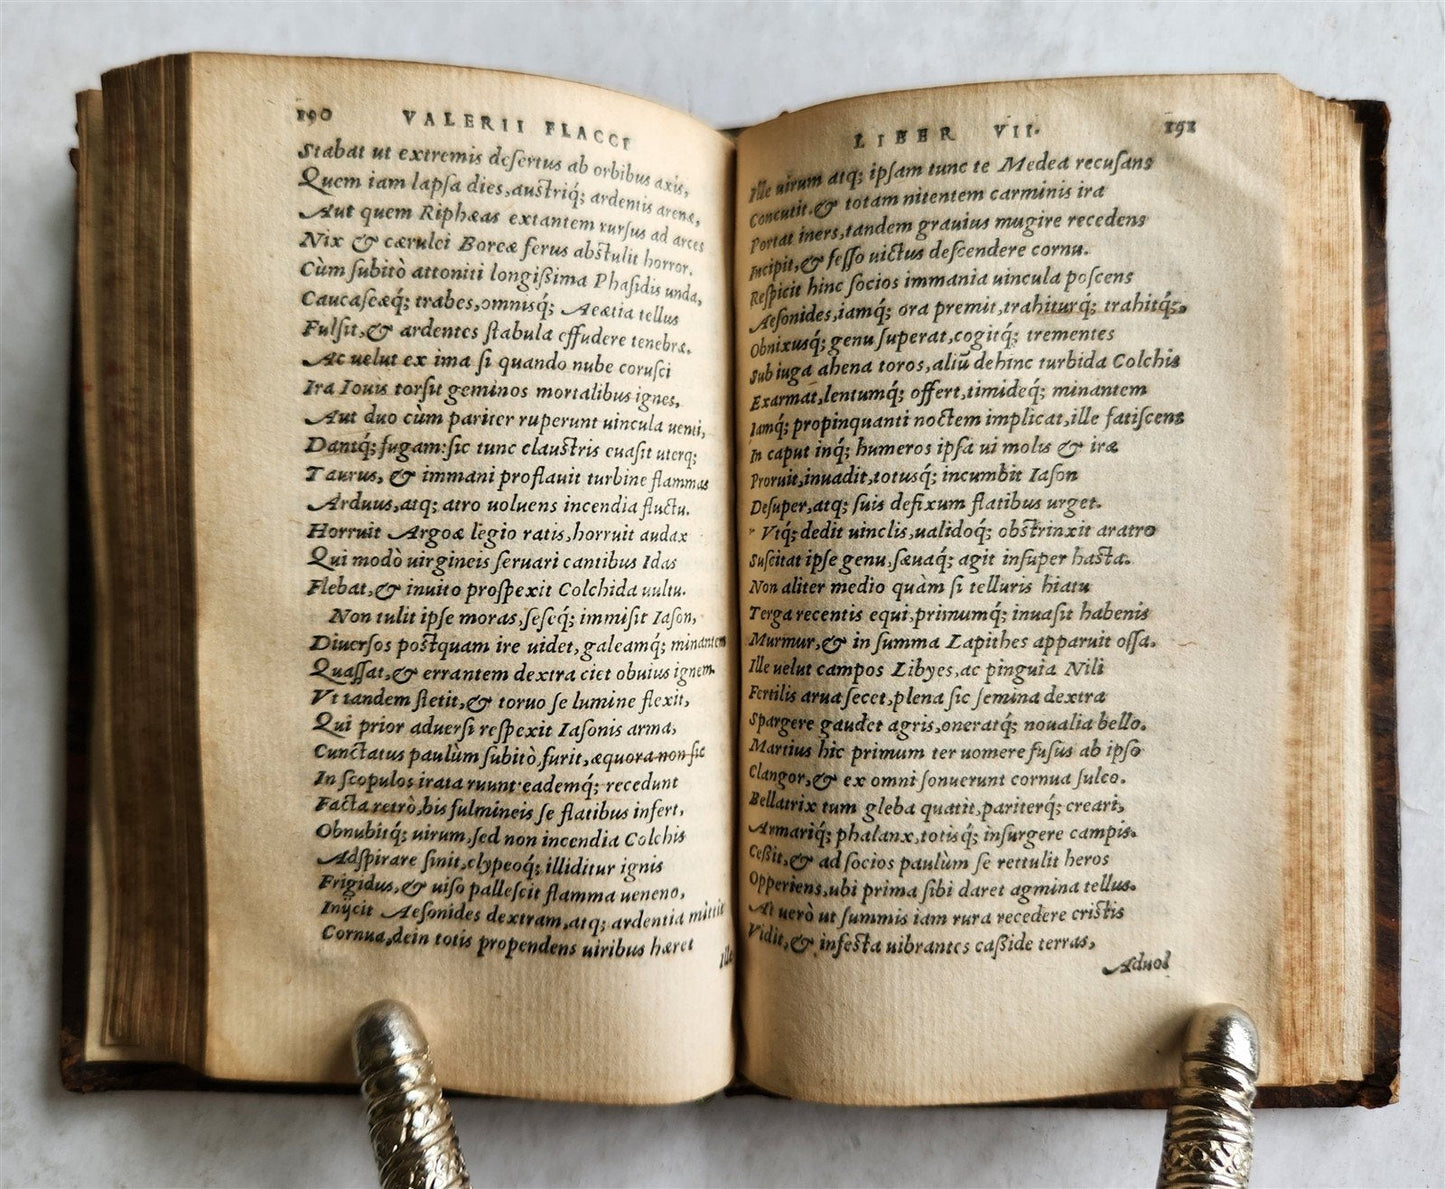 190 VALERII FLACCI
Stabat ut extremis deſertus ab orbibus axis,
Quem iam lapſa dies, auſtriq; ardentis arenæ,
Aut quem Riphæas extantem rurſus ad arces
Nix & cærulei Boreæ ferus abſtulit horror.
Cùm ſubitò attoniti longiſsima Phaſidis unda,
Caucaſeæq́; trabes, omnisq́; Aeætia tellus
Fulſit, & ardentes ſtabula effudere tenebræ.
Ac uelut ex ima ſi quando nube coruſci
Ira Iouis torſit geminos mortalibus ignes,
Aut duo cùm pariter ruperunt uincula uenti,
Dantq́; fugam: ſic tunc clauſtris euaſit uterq;
Taurus, & immani proflauit turbine flammas
Arduus, atq; atro uoluens incendia fluctu.
Horruit Argoæ legio ratis, horruit audax
Qui modò uirgineis ſeruari cantibus Idas
Flebat, & inuito proſpexit Colchida uultu.
Non tulit ipſe moras, ſeſeq́; immiſit Iaſon,
Diuerſos poſtquam ire uidet, galeamq́; minantem
Quaſſat, & errantem dextra ciet obuius ignem.
Vt tandem ſtetit, & toruo ſe lumine flexit,
Qui prior aduerſi reſpexit Iaſonis arma,
Cunctatus paulùm ſubitò furit, æquora non ſic
In ſcopulos irata ruunt eademq́; recedunt
Facta retrò, bis fulmineis ſe flatibus infert,
Obnubitq́; uirum, ſed non incendia Colchis
Adſpirare ſinit, clypeoq́; illiditur ignis
Frigidus, & uiſo palleſcit flamma ueneno,
Inijcit Aeſonides dextram, atq; ardentia mittit
Cornua, dein totis propendens uiribus hæret
ille
LIBER VII. 191
Ille uirum atq; ipſam tunc te Medea recuſans
Concutit, & totam nitentem carminis ira
Portat iners, tandem grauius mugire recedens
Incipit, & feſſo uictus deſcendere cornu.
Reſpicit hinc ſocios immania uincula poſcens
Aeſonides, iamq́; ora premit, trahiturq́; trahitq́;,
Obnixusq́; genu ſuperat, cogitq́; trementes
Sub iuga ahena toros, aliũ dehinc turbida Colchis
Exarmat, lentumq́; offert, timideq́; minantem
Iamq́; propinquanti noctem implicat, ille fatiſcens
In caput inq́; humeros ipſa ui molis & iræ
Proruit, inuadit, totusq́; incumbit Iaſon
Deſuper, atq; ſuis defixum flatibus urget.
Vtq́; dedit uinclis, ualidoq́; obſtrinxit aratro
Suſcitat ipſe genu, ſæuaq́; agit inſuper haſta.
Non aliter medio quàm ſi telluris hiatu
Terga recentis equi, primumq́; inuaſit habenis
Murmur, & in ſumma Lapithes apparuit oſſa.
Ille uelut campos Libyes, ac pinguia Nili
Fertilis arua ſecet, plena ſic ſemina dextra
Spargere gaudet agris, oneratq́; noualia bello.
Martius hic primum ter uomere fuſus ab ipſo
Clangor, & ex omni ſonuerunt cornua ſulco.
Bellatrix tum gleba quatit, pariterq́; creari,
Armariq́; phalanx, totisq́; inſurgere campis.
Ceſsit, & ad ſocios paulùm ſe rettulit heros
Opperiens, ubi prima ſibi daret agmina tellus.
At uerò ut ſummis iam rura recedere criſtis
Vidit, & infeſta uibrantes caſside terras,
Aduol